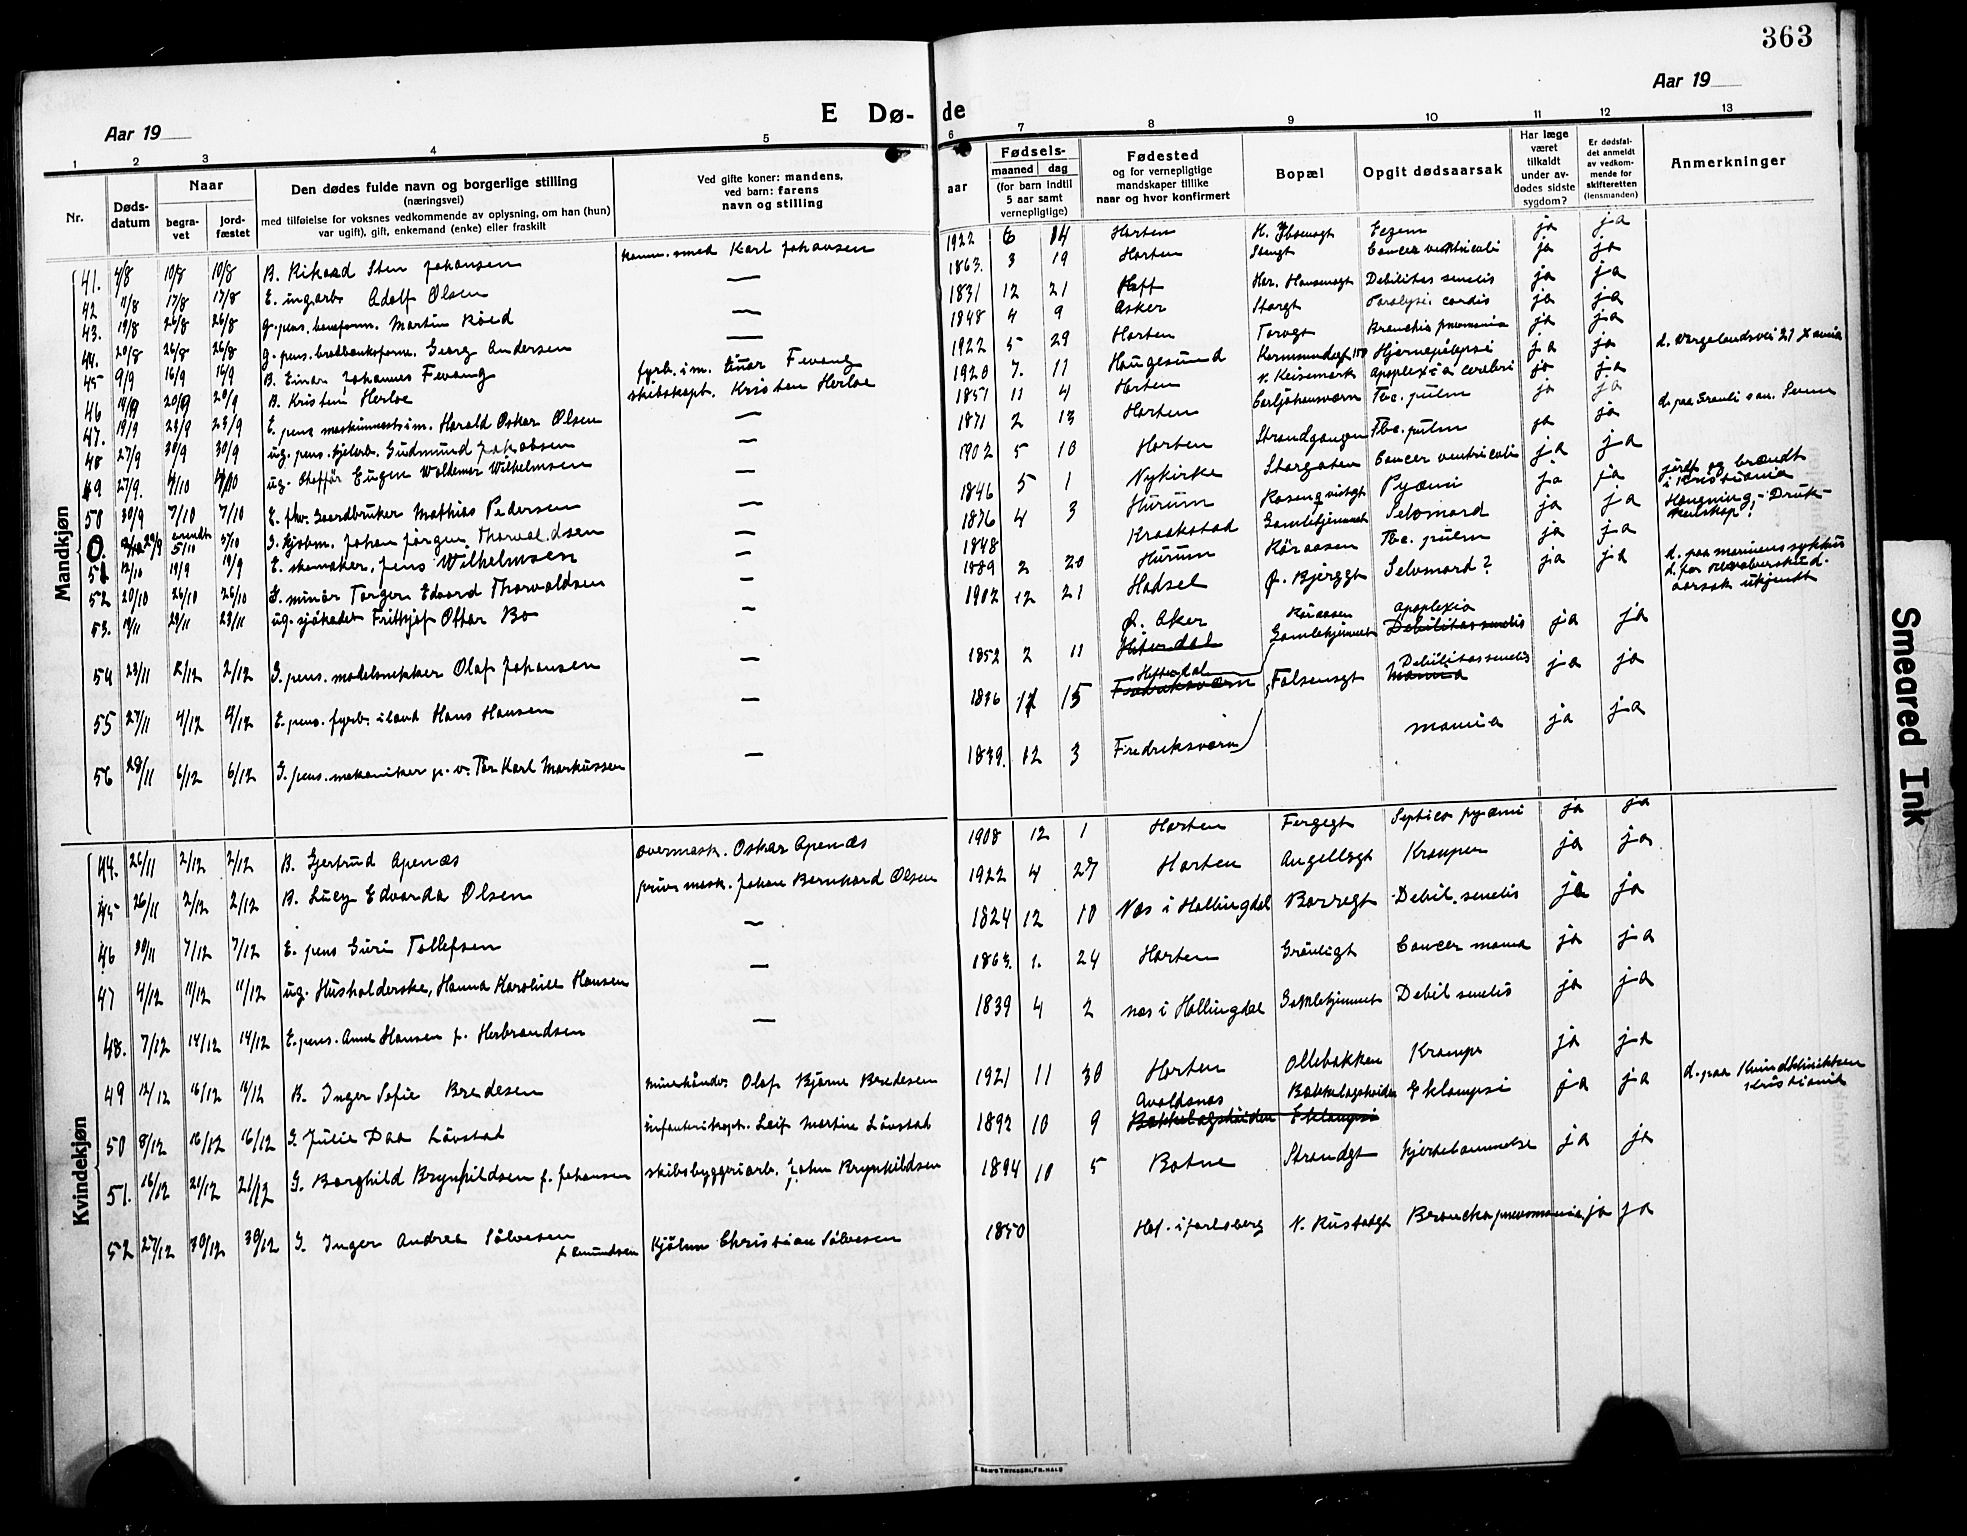 363
Aar 19
E Dø-
de
Aar 19
1 2 3 4 5 6 7 8 9 10 11 12 13
Nr.
Døds-
datum
Naar
begra-
vet
jord-
fæstet
Den dødes fulde navn og borgerlige stilling
(næringsvei)
med tilføielse for voksnes vedkommende av oplysning, om han (hun)
var ugift), gift, enkemand (enke) eller fraskilt
Ved gifte koner: mandens,
ved barn: farens
navn og stilling
aar
Fødsels-
maaned dag
(for barn indtil
5 aar samt
vernepligtige)
Fødested
og for vernepligtige
mandskaper tillike
naar og hvor konfirmert
Bopæl
Opgit dødsaarsak
Har læge
været
tilkaldt
under av-
dødes sidste
sygdom?
Er dødsfal-
det anmeldt
av vedkom-
mende for
skifteretten
(lensmanden)
Anmerkninger
Mandkjøn
41. 10/8 10/8 B. Rikard Sten Johansen Karl Johansen 1922 6 14 Horten Eczem ja ja
42 17/8 17/8 E. Adolf Olsen — 1863. 3 19 Horten Storgt Cancer ventriculi ja ja
43. 19/8 26/8 26/8 Martin Røed — 1831 12 21 Hoff Debilitas senilis ja ja
44. 20/8 26/8 26/8 Georg Andersen — 1848 4 9 Asker Storgt cordis ja ja
45 9/9 16/9 16/9 B. Einar Johannes Fevang fyrb. i m. Einar Fevang 1922 5 29 Horten Torvgt ja ja
46 14/9 20/9 20/9 B. Kristen Herloe skibskapt. Kristen Herloe 1920 7. 11 Haugesund ja ja
47. 19/9 23/9 23/9 E. pens Harald Oskar Olsen — 1851 11 4 Horten apoplexia cerebri ja ja
48 27/9 30/9 30/9 ug. pens. Gudmund Jakobsen — 1871 2 13 Horten Carljohansværn Tbc. pulm ja ja
49 27/9. 4/10 4/10 ug. Eugen Woldemar Wilhelmsen — 1902 5 10 Horten Strandgangen Tbc. pulm ja ja
50 30/9 7/10 7/10 E. fhv. Gaardbruker Mathias Pedersen — 1846 5 1 Nykirke Storgaten Cancer ventriculi ja ja
5/10 5/10 Johan Jørgen — 1876 4 3 Hurum Pyæmi ja ja
51 12/10 19/9 19/9 E. skomaker, Jens Wilhelmsen — 1848 Kraakstad Gamlehjemmet Selvmord ja ja
52 20/10 26/10 26/10 G. minør Torger Edvard Thorvaldsen — 1889 2 20 Hurum Tbc. pulm ja ja
53. 29/11 23/11 ug. sjøkadet Frithjof Ottar Bo — 1902 12 21 Hadsel Selvmord? ja ja
54 23/11 2/12 2/12 G. pens. modelsnekker Olaf Johansen — 1852 2 11 Ø. Aker Hiterdal apoplexia Debilitas senilis ja ja
55 27/11 4/12 4/12 E. pens. fyrb. iland Hans Hansen — 1836 11 15 Hitterdal Fredriksværn Gamlehjemmet Debilitas senilis Mania ja ja
56 28/11 6/12 6/12 G. pens. mekaniker p. v. Tor Karl Markussen — 1839. 12 3 Fredriksværn Falsensgt mania ja ja
jordf. og brændt
i Kristiania
d. paa marinens sykhus
aarsak ukjendt
Kvindekjøn
44. 26/11 2/12 2/12 B. Gjertrud Apenæs overmask. Oskar Apenæs 1908 12 1 Horten Fergegt Septico pyæmi ja ja
45 26/11 2/12 2/12 B. Lucy Edvarda Olsen mask. Johan Bernhard Olsen 1922 4 27 Horten Angellsgt Kramper ja ja
46 30/11 7/12 7/12 E. pens Guri Tollefsen — 1824 12 10 Næs i Hallingdal Borregt Debil. senilis ja ja
47 4/12 11/12 11/12 ug. Husholderske, Hanna Karoline Hansen — 1863. 1. 24 Horten Grønligt Cancer mama ja ja
48. 7/12 14/12 14/12 E. pens. Anne Hansen f. Herbrandsen — 1839 4 2 næs i Hallingdal Gamlehjemmet Debil senilis ja ja
49 12/12 16/12 B. Inger Sofie Bredesen Olaf Bjarne Bredesen 1921 11 30 Horten Ollebakken Krampe ja ja
50 8/12 16/12 16/12 G. Julie Daa Løvstad infanterikapt. Leif Martin Løvstad 1892 10 9 Avaldsnæs Bækkelagshøiden Eklampsi Bækkelagshøiden Eklampsi ja ja d. paa Kvindeklinikken
Kristiania
51. 16/12 21/12 21/12 G. Borghild Brynhildsen f. Johansen skibsbyggeriarb. John Brynhildsen 1894 10 5 Botne Strandgt Hjertelammelse ja ja
52 27/12 30/12 30/12 G. Inger Andrea Sølvesen
f. Amundsen Christian Sølvesen 1850 Hof. i Jarlsberg N. Rustadgt ja ja
Smeared Ink